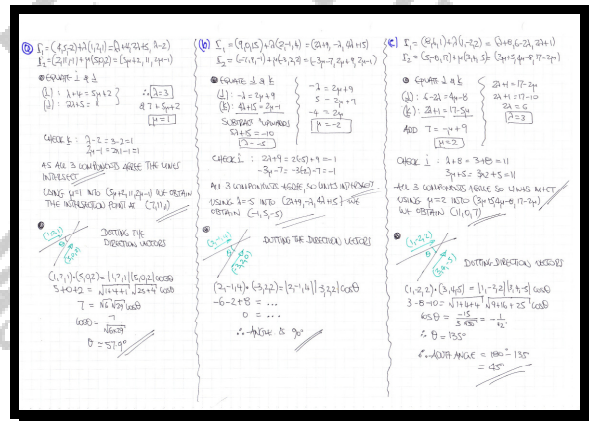 (a) r₁ = (4,5,-2) + λ(1,2,1) = (λ+4, 2λ+5, λ-2)
r₂ = (2,11,-1) + μ(5,0,2) = (5μ+2, 11, 2μ-1)
EQUATE i & j
(i): λ+4 = 5μ+2
(j): 2λ+5 = 11
∴ λ=3
& 7 = 5μ+2
μ=1
CHECK k: λ-2 = 3-2 = 1
2μ-1 = 2×1-1 = 1
AS ALL 3 COMPONENTS AGREE THE LINES
INTERSECT
USING μ=1 INTO (5μ+2, 11, 2μ-1) WE OBTAIN
THE INTERSECTION POINT AT (7,11,1)
DOTTING THE
DIRECTION VECTORS
(1,2,1)
(5,0,2)
θ
(1,2,1)·(5,0,2) = |1,2,1||5,0,2| cosθ
5+0+2 = √1+4+1 √25+4 cosθ
7 = √6 √29 cosθ
cosθ = 7/√6√29
θ = 57.9°
(b) r₁ = (9,0,15) + λ(2,-1,4) = (2λ+9, -λ, 4λ+15)
EQUATE j & k
(j): -λ = 2μ+9
(k): 4λ+15 = 2μ-1
SUBTRACT "UPWARDS"
5λ+15 = -10
λ = -5
-λ = 2μ+9
5 = 2μ+9
-4 = 2μ
μ = -2
CHECK i: 2λ+9 = 2(-5)+9 = -1
-3μ-7 = -3(-2)-7 = -1
ALL 3 COMPONENTS AGREE, SO LINES INTERSECT
USING λ=-5 INTO (2λ+9, -λ, 4λ+15) WE
OBTAIN (-1,5,-5)
DOTTING THE DIRECTION VECTORS
θ
(2,-1,4)·(-3,2,2) = |2,-1,4||-3,2,2| cosθ
-6-2+8 = ...
0 = ...
∴ ANGLE IS 90°
(c) r₁ = (8,6,1) + λ(1,-2,2) = (λ+8, 6-2λ, 2λ+1)
EQUATE j & k
(j): 6-2λ = 4μ-8
(k): 2λ+1 = 17-5μ
ADD 7 = -μ+9
μ=2
2λ+1 = 17-5μ
2λ+1 = 17-10
2λ = 6
λ=3
CHECK i: λ+8 = 3+8 = 11
3μ+5 = 3×2+5 = 11
ALL 3 COMPONENTS AGREE SO LINES MEET
USING μ=2 INTO (3μ+5, 4μ-8, 17-5μ)
WE OBTAIN (11,0,7)
DOTTING DIRECTION VECTORS
(1,-2,2)
(3,4,-5)
θ
(1,-2,2)·(3,4,-5) = |1,-2,2||3,4,-5| cosθ
3-8-10 = √1+4+4 √9+16+25 cosθ
cosθ = -15/3√50 = -1/√2
∴ θ = 135°
∴ ACUTE ANGLE = 180° - 135°
= 45°